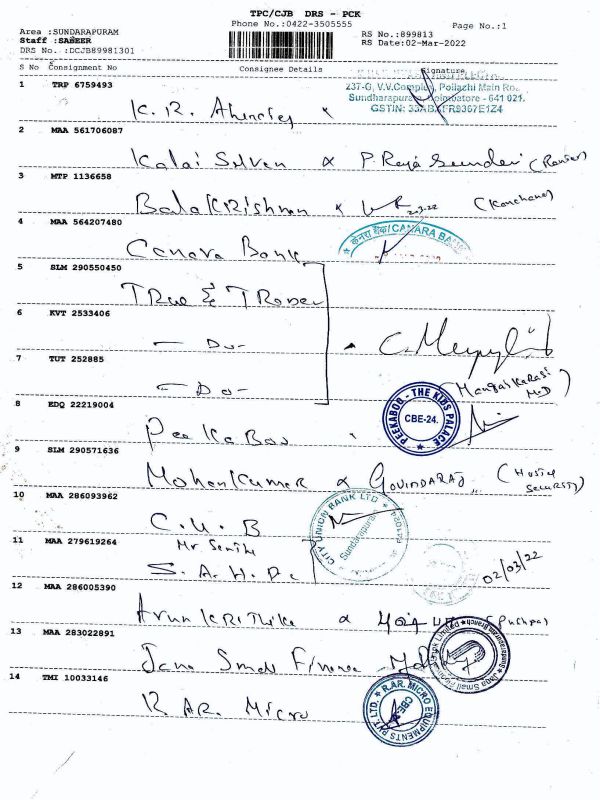 TPC/CJB DRS - PCK
Phone No.:0422-3505555
Page No.:1
Area :SUNDARAPURAM
Staff :SABEER
DRS No. :DCJB89981301
RS No.:899813
RS Date:02-Mar-2022
S No Consignment No Consignee Details Signature
1 TRP 6759493
237-G, V.V.Complex, Pollachi Main Ro
Sundharapuram, Coimbatore - 641 021.
K. R.
2 MAA 561706087
Kalai Selven P. Raja Sundari
3 MTP 1136658
Balakrishnan 2-3-22 (Kanchana)
4 MAA 564207480
केनरा बैंक/CANARA BANK
Canara Bank
5 SLM 290550450
True & 
6 KVT 2533406
- Do -
7 TUT 252885
- Do -
(Mangaikarasi
8 EDQ 22219004
PEEKABOO - THE KIDS PALACE
CBE-24.
Peekaboo
9 SLM 290571636
Mohankumar GOVINDARAJ (Hostel
Security)
10 MAA 286093962
C.U.B
CITY UNION BANK LTD
Sundarapuram
641024
11 MAA 279619264
S.A.H.D.
02/03/22
12 MAA 286005390
Arun Krithika (Pushpa)
13 MAA 283022891
Jana Small Finance
Jana Small Finance Bank Limited
Sundarapuram Branch
14 TMI 10033146
R.AR. Micro
R.AR. MICRO EQUIPMENTS PVT. LTD